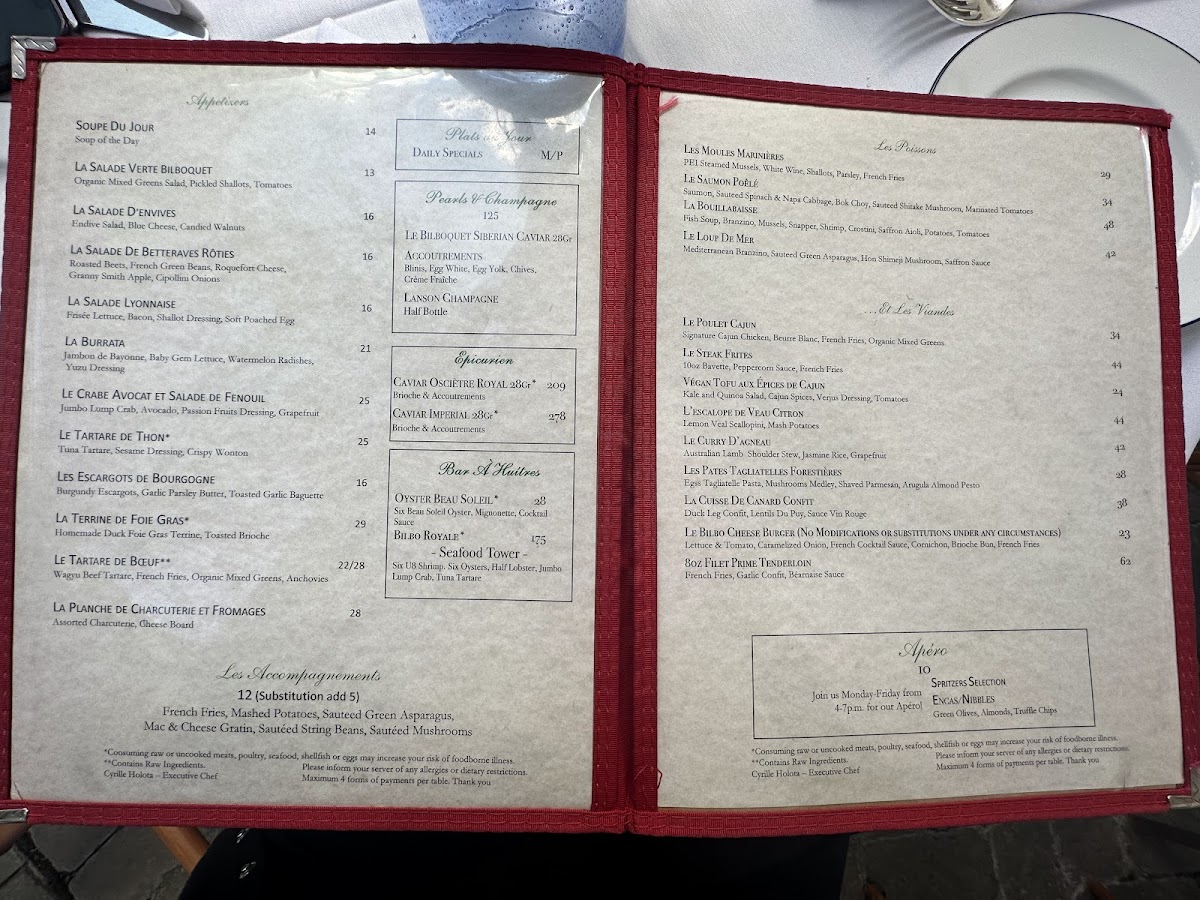 Appetizers
SOUPE DU JOUR 14
Soup of the Day
LA SALADE VERTE BILBOQUET 13
Organic Mixed Greens Salad, Pickled Shallots, Tomatoes
LA SALADE D'ENVIVES 16
Endive Salad, Blue Cheese, Candied Walnuts
LA SALADE DE BETTERAVES RÔTIES 16
Roasted Beets, French Green Beans, Roquefort Cheese,
Granny Smith Apple, Cipollini Onions
LA SALADE LYONNAISE 16
Frisée Lettuce, Bacon, Shallot Dressing, Soft Poached Egg
LA BURRATA 21
Jambon de Bayonne, Baby Gem Lettuce, Watermelon Radishes,
Yuzu Dressing
LE CRABE AVOCAT ET SALADE DE FENOUIL 25
Jumbo Lump Crab, Avocado, Passion Fruits Dressing, Grapefruit
LE TARTARE DE THON* 25
Tuna Tartare, Sesame Dressing, Crispy Wonton
LES ESCARGOTS DE BOURGOGNE 16
Burgundy Escargots, Garlic Parsley Butter, Toasted Garlic Baguette
LA TERRINE DE FOIE GRAS* 29
Homemade Duck Foie Gras Terrine, Toasted Brioche
LE TARTARE DE BŒUF** 22/28
Wagyu Beef Tartare, French Fries, Organic Mixed Greens, Anchovies
LA PLANCHE DE CHARCUTERIE ET FROMAGES 28
Assorted Charcuterie, Cheese Board
Plats du Jour
DAILY SPECIALS M/P
Pearls & Champagne
125
LE BILBOQUET SIBERIAN CAVIAR 28Gr
ACCOUTREMENTS
Blinis, Egg White, Egg Yolk, Chives,
Crème Fraîche
LANSON CHAMPAGNE
Half Bottle
Epicurien
CAVIAR OSCIÈTRE ROYAL 28Gr* 209
Brioche & Accoutrements
CAVIAR IMPERIAL 28Gr* 278
Brioche & Accoutrements
Bar À Huîtres
OYSTER BEAU SOLEIL* 28
Six Beau Soleil Oyster, Mignonette, Cocktail
Sauce
BILBO ROYALE* 175
- Seafood Tower -
Six U8 Shrimp, Six Oysters, Half Lobster, Jumbo
Lump Crab, Tuna Tartare
Les Accompagnements
12 (Substitution add 5)
French Fries, Mashed Potatoes, Sauteed Green Asparagus,
Mac & Cheese Gratin, Sautéed String Beans, Sautéed Mushrooms
*Consuming raw or uncooked meats, poultry, seafood, shellfish or eggs may increase your risk of foodborne illness.
**Contains Raw Ingredients. Please inform your server of any allergies or dietary restrictions.
Cyrille Holota – Executive Chef Maximum 4 forms of payments per table. Thank you
Les Poissons
LES MOULES MARINIÈRES 29
PEI Steamed Mussels, White Wine, Shallots, Parsley, French Fries
LE SAUMON POÊLÉ 34
Saumon, Sauteed Spinach & Napa Cabbage, Bok Choy, Sauteed Shitake Mushroom, Marinated Tomatoes
LA BOUILLABAISSE 48
Fish Soup, Branzino, Mussels, Snapper, Shrimp, Crostini, Saffron Aioli, Potatoes, Tomatoes
LE LOUP DE MER 42
Mediterranean Branzino, Sauteed Green Asparagus, Hon Shimeji Mushroom, Saffron Sauce
...Et Les Viandes
LE POULET CAJUN 34
Signature Cajun Chicken, Beurre Blanc, French Fries, Organic Mixed Greens
LE STEAK FRITES 44
10oz Bavette, Peppercorn Sauce, French Fries
VÉGAN TOFU AUX ÉPICES DE CAJUN 24
Kale and Quinoa Salad, Cajun Spices, Verjus Dressing, Tomatoes
L'ESCALOPE DE VEAU CITRON 44
Lemon Veal Scallopini, Mash Potatoes
LE CURRY D'AGNEAU 42
Australian Lamb Shoulder Stew, Jasmine Rice, Grapefruit
LES PATES TAGLIATELLES FORESTIÈRES 28
Eggs Tagliatelle Pasta, Mushrooms Medley, Shaved Parmesan, Arugula Almond Pesto
LA CUISSE DE CANARD CONFIT 38
Duck Leg Confit, Lentils Du Puy, Sauce Vin Rouge
LE BILBO CHEESE BURGER (NO MODIFICATIONS OR SUBSTITUTIONS UNDER ANY CIRCUMSTANCES) 23
Lettuce & Tomato, Caramelized Onion, French Cocktail Sauce, Cornichon, Brioche Bun, French Fries
8OZ FILET PRIME TENDERLOIN 62
French Fries, Garlic Confit, Béarnaise Sauce
Apéro
10
Join us Monday-Friday from
4-7p.m. for our Apérol
SPRITZERS SELECTION
ENCAS/NIBBLES
Green Olives, Almonds, Truffle Chips
*Consuming raw or uncooked meats, poultry, seafood, shellfish or eggs may increase your risk of foodborne illness.
**Contains Raw Ingredients. Please inform your server of any allergies or dietary restrictions.
Cyrille Holota – Executive Chef Maximum 4 forms of payments per table. Thank you